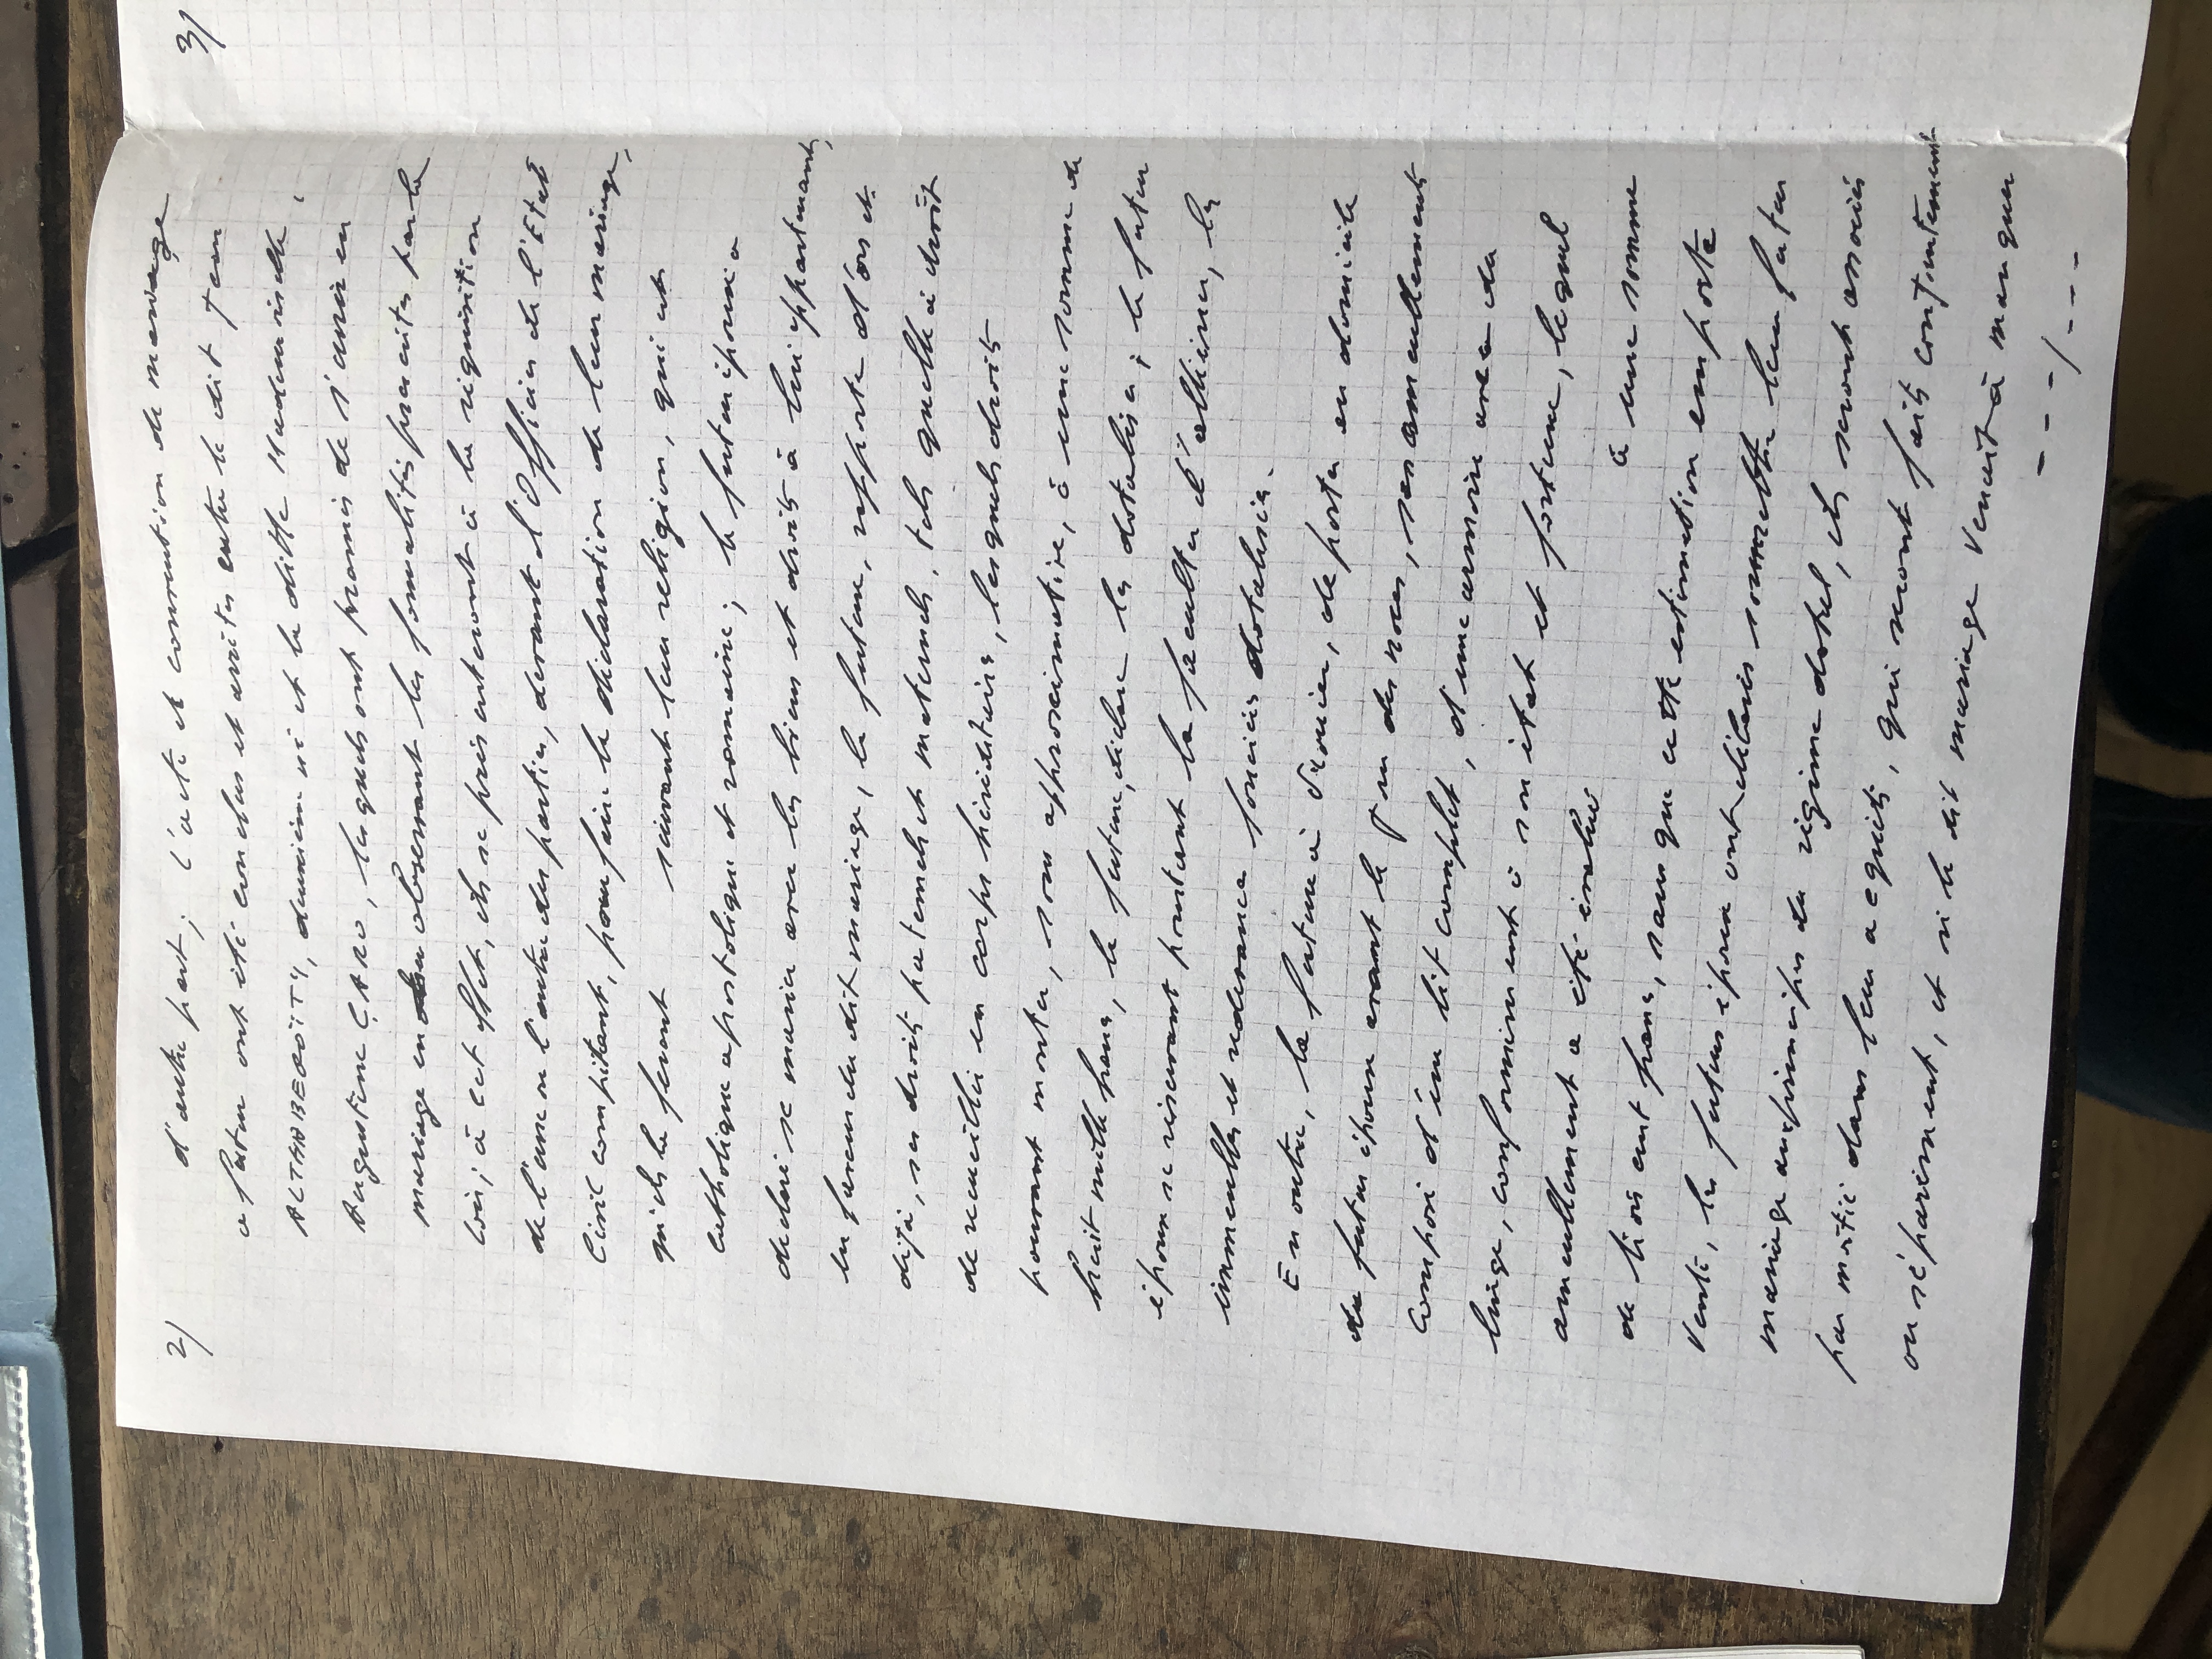 2/
d'autre part; l'acte et convention de mariage
a futur ont été conclus et arrêtés entre le dit Jean
ALTHABEGOÏTY, dumécien ici et la ditte Mademoiselle
Augustine CARO, lesquels ont promis de s'unir en
mariage en observant les formalités prescrites par la
Loi; à cet effet, ils se présenteront à la réquisition
de l'une ou l'autre des parties, devant l'Officier de l'Etat
Civil compétant, pour faire la déclaration de leur mariage,
qu'ils feront suivant leur religion, qui est
catholique apostolique et romaine; le futur époux a
declaré se marier avec les biens et droits à lui appartenant,
en faveur du dit mariage, la future, apporte d'ors et
déjà, ses droits paternels et maternels, tels quelle a droit
de recueillir en corps héréditaires, lesquels droits
pouvant monter, par approximative, à une somme de
huit mille francs, la future, déclare les dotaliser; le futur
époux se réservant pourtant la faculté d'alliéner, les
immeubles et redevance fonciers dotalisés.
En outre, la future à s'unir, de porter en domicile
du futur époux avant le jour des noces, son ameublement
composé d'un lit complet, d'une armoire avec du
linge, conformément à son état et fortune, lequel
ameublement a été évalué à une somme
de trois cent francs, sans que cette estimation emporte
vente, les futurs époux ont déclarés soumettre leur futur
mariage aux principes du régime dotal, ils seront associés
par moitié dans leur acquêts, qui seront faits conjointement
ou séparément, et si le dit mariage venait à manquer
- - - / - - -
3/